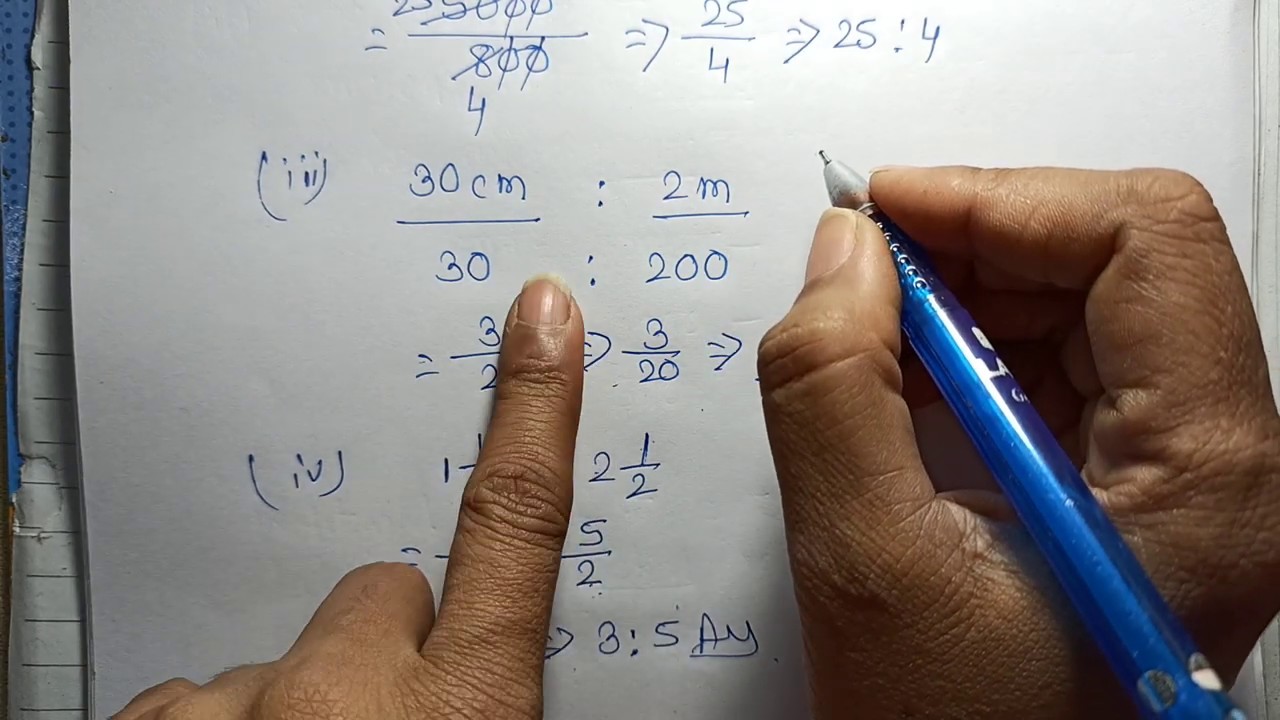 = 5000/800 => 25/4 => 25 : 4
4
(iii) 30 cm : 2 m
30 : 200
= 3 => 3/20 =>
(iv) 1 2 1/2
= 5/2
=> 3 : 5